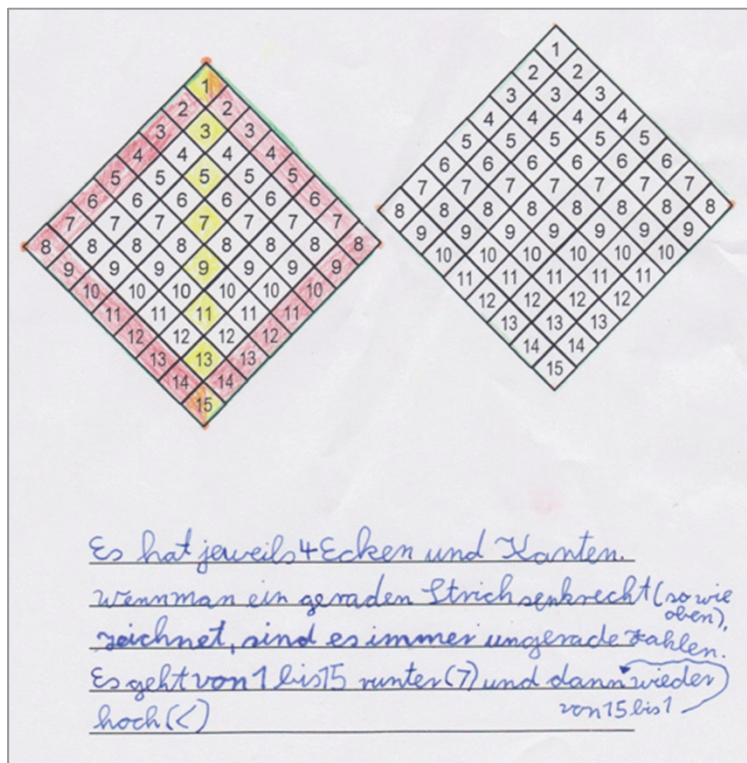 1
2 2
3 3 3
4 4 4 4
5 5 5 5 5
6 6 6 6 6 6
7 7 7 7 7 7 7
8 8 8 8 8 8 8 8
9 9 9 9 9 9 9
10 10 10 10 10 10
11 11 11 11 11
12 12 12 12
13 13 13
14 14
15
1
2 2
3 3 3
4 4 4 4
5 5 5 5 5
6 6 6 6 6 6
7 7 7 7 7 7 7
8 8 8 8 8 8 8 8
9 9 9 9 9 9 9
10 10 10 10 10 10
11 11 11 11 11
12 12 12 12
13 13 13
14 14
15
Es hat jeweils 4 Ecken und Kanten.
wennman ein geraden Strich senkrecht (so wie
oben),
zeichnet, sind es immer ungerade zahlen.
Es geht von 1 bis 15 runter (7) und dann wieder
hoch (<)
von 15 bis 1